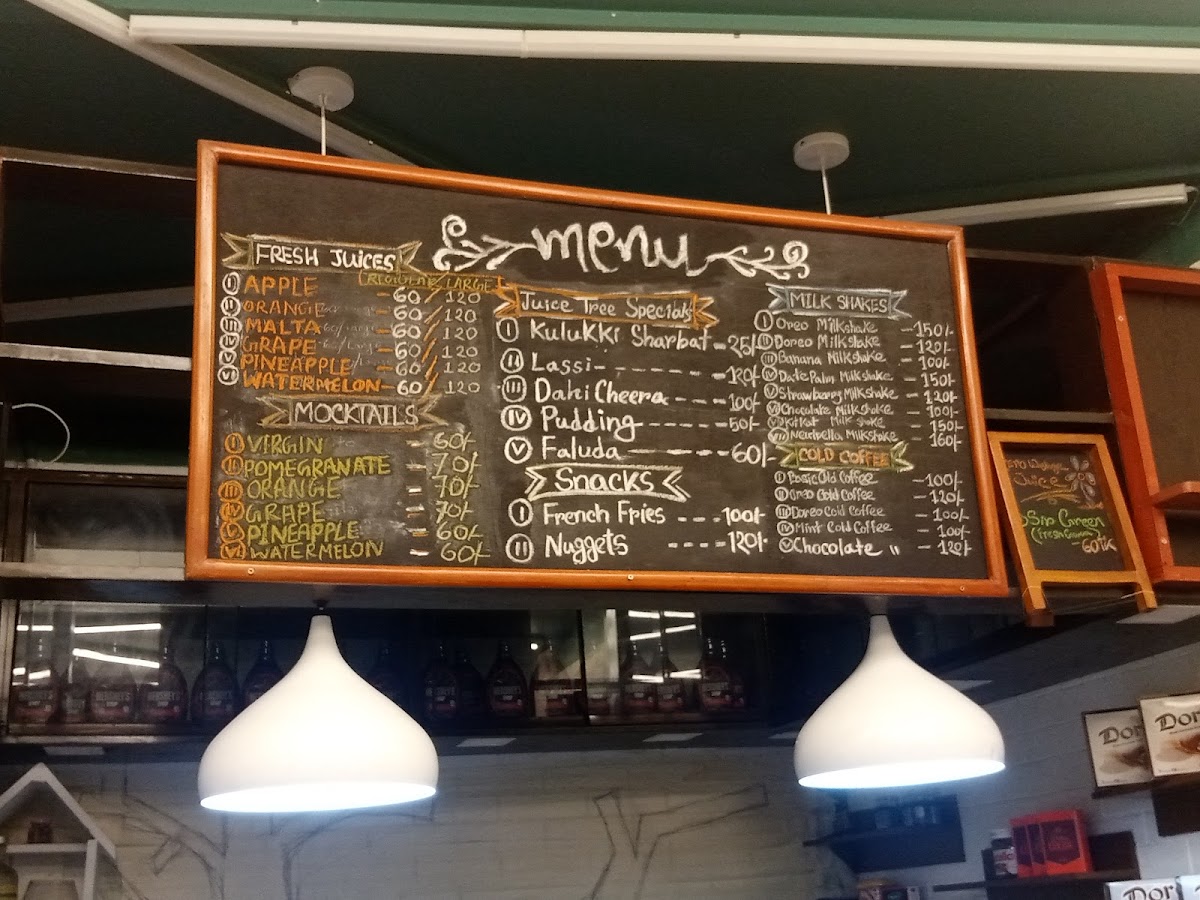 menu
FRESH JUICES
REGULAR/LARGE
I APPLE -60/120
II ORANGE -60/120
III MALTA -60/120
IV GRAPE -60/120
V PINEAPPLE -60/120
VI WATERMELON-60/120
MOCKTAILS
I VIRGIN - 60/-
II POMEGRANATE - 70/-
III ORANGE - 70/-
IV GRAPE - 70/-
V PINEAPPLE - 60/-
VI WATERMELON - 60/-
Juice Tree Specials
I Kulukki Sharbat-25/-
II Lassi
III Dahi Cheera---100/-
IV Pudding ---50/-
V Faluda---60/-
Snacks
I French Fries ---100/-
II Nuggets ----120/-
MILK SHAKES
I Oreo Milkshake -150/-
II Doreo Milkshake -120/-
III Banana Milkshake 100/-
IV Date Palm Milkshake -150/-
V Strawberry Milkshake -120/-
VI Chocolate Milkshake -100/-
VII Kitkat Milk shake -150/-
VIII Milkshake 160/-
COLD COFFEE
I Cold Coffee -100/-
II Oreo Cold Coffee -120/-
III Doreo Cold Coffee -100/-
IV Mint Cold Coffee - 100/-
V Chocolate " - 120/-
Juice
-60Tk
HERSHEY'S
Dor
Dor
Dor